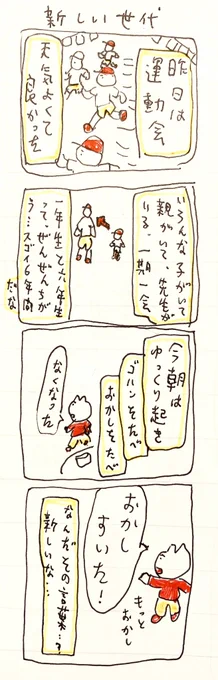 新しい世代
昨日は
運動会
天気よくて
良かった
いろんな子がいて
親がいて、先生が
いる。一期一会
一年生と六年生
って、ぜんぜんちが
う…スゴイ6年間
だな
今朝は
ゆっくり起き
ゴハンをたべ
おかしをたべ
なくなった
おかし
すいた!
もっと
おかし
なんだその言葉…?
新しいな…